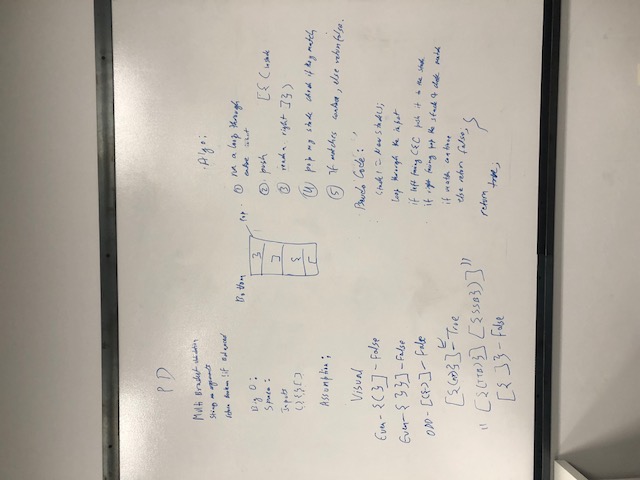 PD
Multi Bracket validation
String as arguments
return boolean if Balanced
Big O:
Space:
Inputs
Assumption:
Visual
Even - {(}] - False
Even - { }}] - False
ODD - - False
- True
[{ ]} - False
Bottom
Pop
}
]
{
[
Algo:
① run a loop through
entire
② push [{(
③ reach a right ]})
④ pop my stack check if they match
⑤ If matches continue, else return false.
Pseudo Code:
Stack1 = New Stack();
loop through the input
if left facing push it to the stack
if right facing pop the stack & check match
if match continue
else return false; }
return
true;